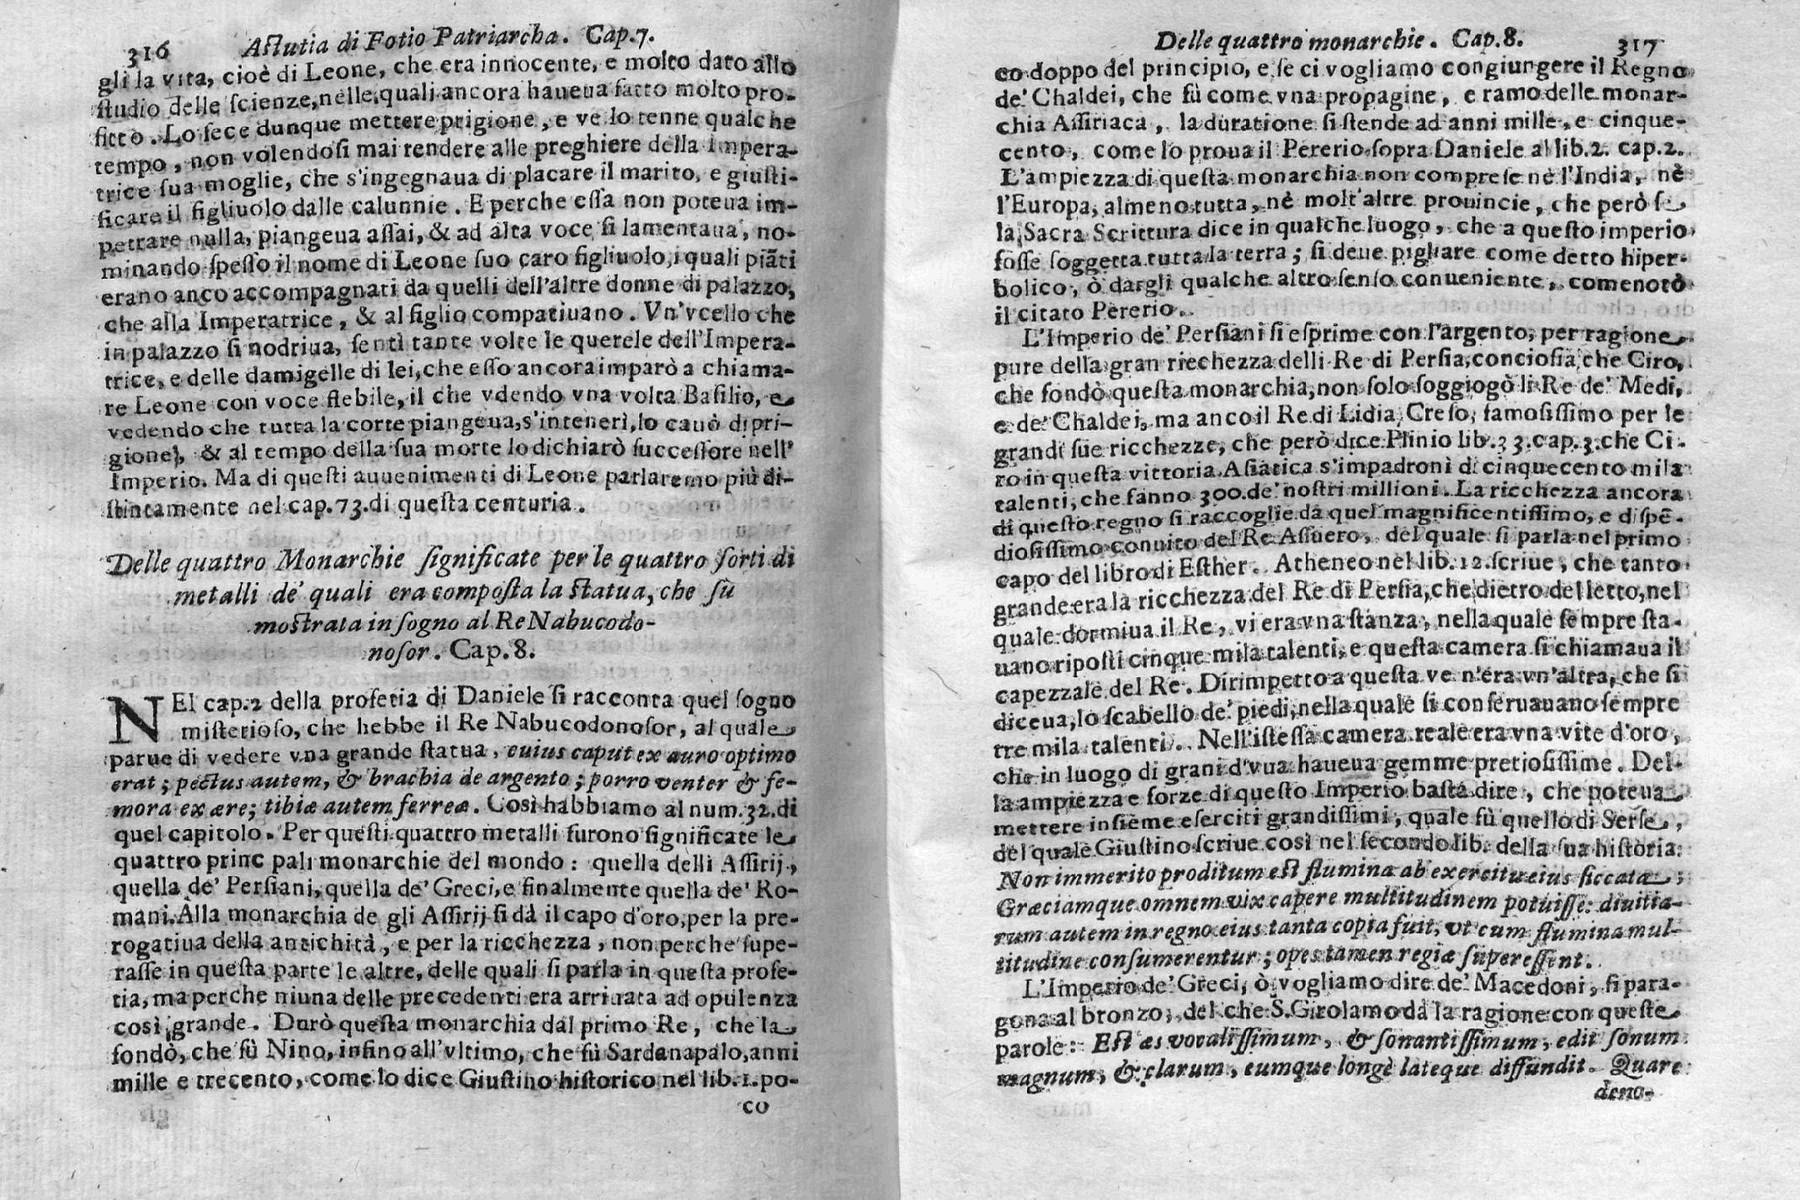 316 Aſtutia di Fotio Patriarcha. Cap.7.
gli la vita, cioè di Leone, che era innocente, e molto dato allo
ſtudio delle ſcienze, nelle quali ancora haueua fatto molto pro-
fitto. Lo fece dunque mettere prigione, e ve lo tenne qualche
tempo, non volendoſi mai rendere alle preghiere della Impera-
trice ſua moglie, che s'ingegnaua di placare il marito, e giuſti-
ficare il figliuolo dalle calunnie. E perche eſſa non poteua im-
petrare nulla, piangeua aſſai, & ad alta voce ſi lamentaua, no-
minando ſpeſſo il nome di Leone ſuo caro figliuolo, i quali piāti
erano anco accompagnati da quelli dell'altre donne di palazzo,
che alla Imperatrice, & al figlio compatiuano. Vn'vcello che
in palazzo ſi nodriua, ſentì tante volte le querele dell'Impera-
trice, e delle damigelle di lei, che eſſo ancora imparò a chiama-
re Leone con voce flebile, il che vdendo vna volta Baſilio, e
vedendo che tutta la corte piangeua, s'intenerì, lo cauò di pri-
gione, & al tempo della ſua morte lo dichiarò ſucceſſore nell'
Imperio. Ma di queſti auuenimenti di Leone parlaremo più di-
ſtintamente nel cap.73.di queſta centuria.
Delle quattro Monarchie ſignificate per le quattro ſorti di
metalli de' quali era compoſta la ſtatua, che fù
moſtrata in ſogno al Re Nabucodo-
noſor. Cap.8.
NEl cap.2 della profetia di Daniele ſi racconta quel ſogno
miſterioſo, che hebbe il Re Nabucodonoſor, al quale
parue di vedere vna grande ſtatua, cuius caput ex auro optimo
erat; pectus autem, & brachia de argento; porro venter & fe-
mora ex ære; tibiæ autem ferreæ. Così habbiamo al num.32.di
quel capitolo. Per queſti quattro metalli furono ſignificate le
quattro princ pali monarchie del mondo: quella delli Aſſirij,
quella de' Perſiani, quella de' Greci, e finalmente quella de' Ro-
mani. Alla monarchia de gli Aſſirij ſi dà il capo d'oro, per la pre-
rogatiua della antichità, e per la ricchezza, non perche ſupe-
raſſe in queſta parte le altre, delle quali ſi parla in queſta profe-
tia, ma perche niuna delle precedenti era arriuata ad opulenza
così grande. Durò queſta monarchia dal primo Re, che la
fondò, che fù Nino, inſino all'vltimo, che fù Sardanapalo, anni
mille e trecento, come lo dice Giuſtino hiſtorico nel lib.1.po-
co
Delle quattro monarchie. Cap.8. 317
co doppo del principio, e ſe ci vogliamo congiungere il Regno
de' Chaldei, che fù come vna propagine, e ramo delle monar-
chia Aſſiriaca, la duratione ſi ſtende ad anni mille, e cinque-
cento, come lo proua il Pererio ſopra Daniele al lib.2. cap.2.
L'ampiezza di queſta monarchia non compreſe nè l'India, nè
l'Europa, almeno tutta, nè molt'altre prouincie, che però ſe
la Sacra Scrittura dice in qualche luogo, che a queſto imperio
foſſe ſoggetta tutta la terra; ſi deue pigliare come detto hiper-
bolico, ò dargli qualche altro ſenſo conueniente, come notò
il citato Pererio.
L'Imperio de' Perſiani ſi eſprime con l'argento, per ragione
pure della gran ricchezza delli Re di Perſia, concioſia che Ciro,
che fondò queſta monarchia, non ſolo ſoggiogò li Re de' Medi,
e de' Chaldei, ma anco il Re di Lidia, Creſo, famoſiſſimo per le
grandi ſue ricchezze, che però dice Plinio lib.33.cap.3.che Ci-
ro in queſta vittoria Aſiatica s'impadronì di cinquecento mila
talenti, che fanno 300.de' noſtri millioni. La ricchezza ancora
di queſto regno ſi raccoglie da quel magnificentiſſimo, e diſpē-
dioſiſſimo conuito del Re Aſſuero, del quale ſi parla nel primo
capo del libro di Eſther. Atheneo nel lib.12.ſcriue, che tanto
grande era la ricchezza del Re di Perſia, che dietro del letto, nel
quale dormiua il Re, vi era vna ſtanza, nella quale ſempre ſta-
uano ripoſti cinque mila talenti, e queſta camera ſi chiamaua il
capezzale del Re. Dirimpetto a queſta ve n'era vn'altra, che ſi
diceua, lo ſcabello de' piedi, nella quale ſi conſeruauano ſempre
tre mila talenti. Nell'iſteſſa camera reale era vna vite d'oro,
che in luogo di grani d'vua haueua gemme pretioſiſſime. Del-
la ampiezza e forze di queſto Imperio baſta dire, che poteua
mettere inſieme eſerciti grandiſſimi, quale fù quello di Serſe,
del quale Giuſtino ſcriue così nel ſecondo lib. della ſua hiſtoria:
Non immerito proditum eſt flumina ab exercitu eius ſiccata;
Græciamque omnem vix capere multitudinem potuiſſe: diuitia-
rum autem in regno eius tanta copia fuit, vt cum flumina mul-
titudine conſumerentur; opes tamen regiæ ſupereſſent.
L'Imperio de' Greci, ò vogliamo dire de' Macedoni, ſi para-
gona al bronzo, del che S.Girolamo dà la ragione con queſte
parole: Eſt æs vocaliſſimum, & ſonantiſſimum, edit ſonum
magnum, & clarum, eumque longè lateque diffundit. Quare
deno-